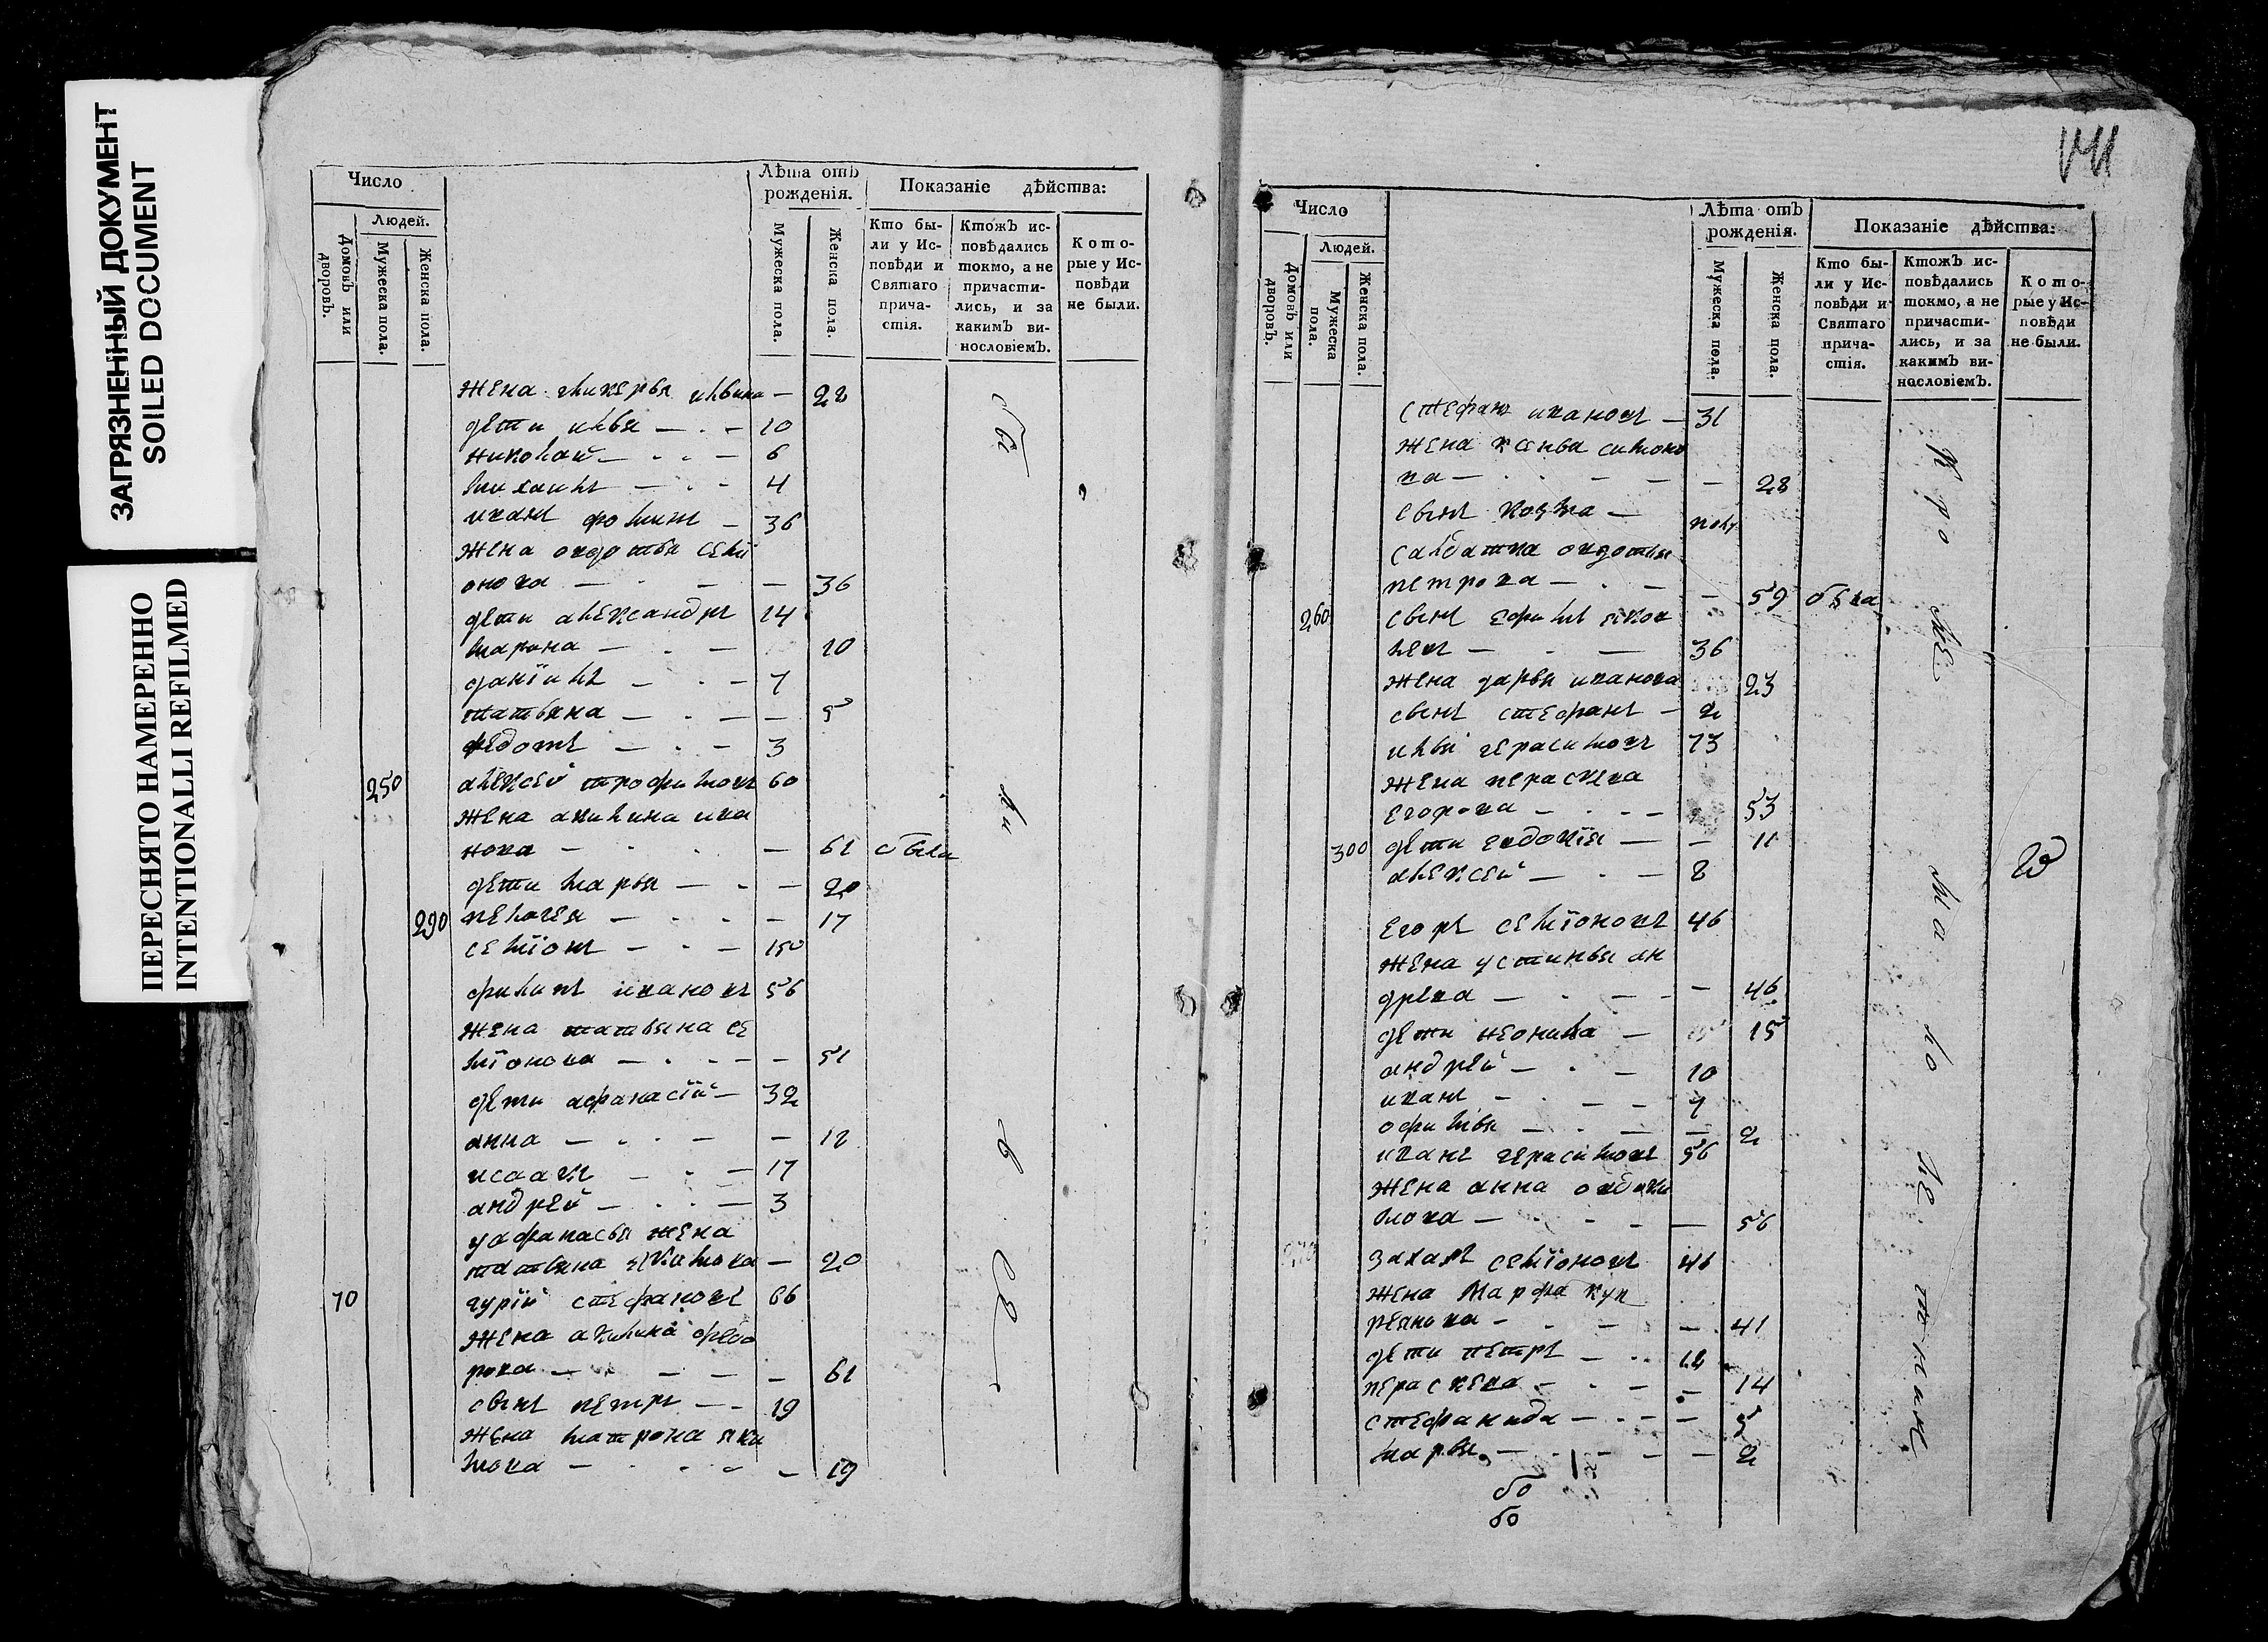 ЗАГРЯЗНЕННЫЙ ДОКУМЕНТ
SOILED DOCUMENT
ПЕРЕСНЯТО НАМЕРЕННО
INTENTIONALLI REFILMED
Число
Людей.
Домовъ или дворовъ.
Мужеска пола.
Женска пола.
Лѣта отъ рожденія.
Мужеска пола.
Женска пола.
Показаніе дѣйства:
Кто были у Исповѣди и Святаго причастія.
Ктожъ исповѣдались токмо, а не причастились, и за какимъ винословіемъ.
Которые у Исповѣди не были.
жена гликерья ильина — 28
дети илья — 10
николай — 6
михаилъ — 4
иванъ фоминъ — 36
жена овдотья семї
онова — 36
дети александръ 14
марина — 10
данїилъ — 7
татьяна — 5
федотъ — 3
250 алексей трофимовъ 60
жена акилина ива
нова — 61 были
дети марья — 20
290 пелагея — 17
семїонъ —
филипъ ивановъ 56
жена татьяна се
мїонова — 51
дети афанасїй — 32
анна — 12
исаакъ — 17
андрей — 3
у афанасья жена
татьяна екимова — 20
70 гурїй стефановъ 66
жена акилина федо
рова — 61
сынъ петръ — 19
жена матрона яки
мова — 19
Число
Людей.
Домовъ или дворовъ.
Мужеска пола.
Женска пола.
Лѣта отъ рожденія.
Мужеска пола.
Женска пола.
Показаніе дѣйства:
Кто были у Исповѣди и Святаго причастія.
Ктожъ исповѣдались токмо, а не причастились, и за какимъ винословіемъ.
Которые у Исповѣди не были.
стефанъ ивановъ — 31
жена ксенья симоно
ва — 28
сынъ козма — полу
салдатка овдотья
петрова — 59 была
260 сынъ ефимъ яков
левъ — 36
жена дарья иванова 23
сынъ стефанъ — 2
илья герасимовъ 73
жена параскева
егорова — 53
300 дети евдокїя — 11
алексей — 8
егоръ семїоновъ 46
жена устинья ан
дреева — 46
дети неонила — 15
андрей — 10
иванъ — 7
офимья — 2
иванъ герасимовъ 56
жена анна овдоки
мова — 56
захаръ семїоновъ 46
жена марфа куп
реянова — 41
дети петръ — 12
параскева — 14
стефанида — 5
марья — 2